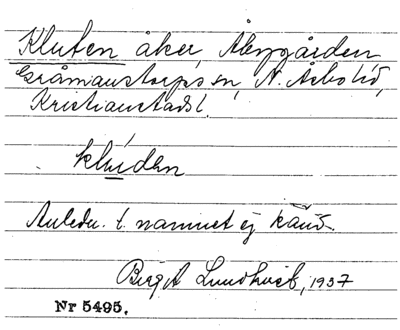 Kluten åker, Åbygården
Gråmanstorps sn, N. Åsbo hd,
Kristianstads l.
klúden
Anledn. t. namnet ej känd.
Birgit Lundkvist, 1937
Nr 5495.